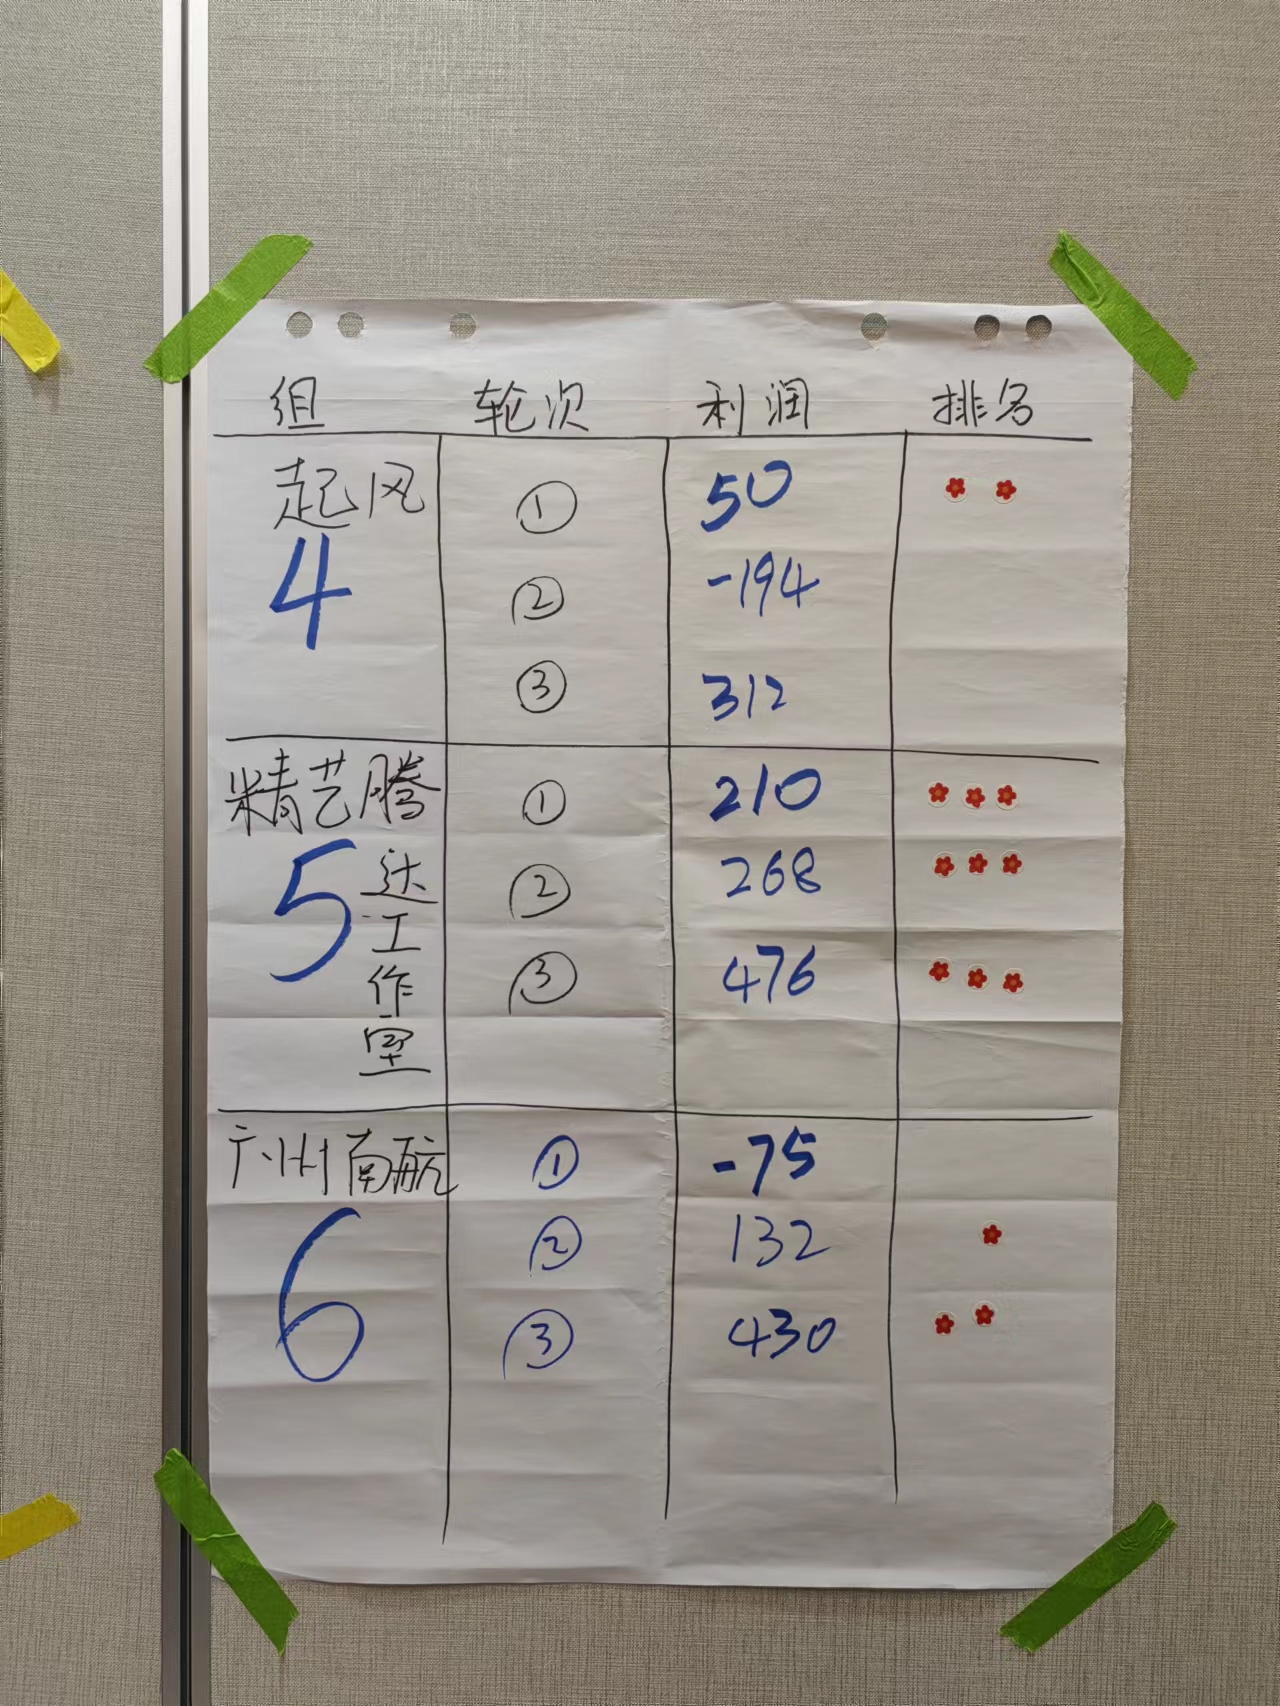 组 轮次 利润 排名
起风 ① 50
4 ② -194
③ 312
精艺腾 ① 210
5 达 ② 268
工
作 ③ 476
室
广州南航 ① -75
6 ② 132
③ 430